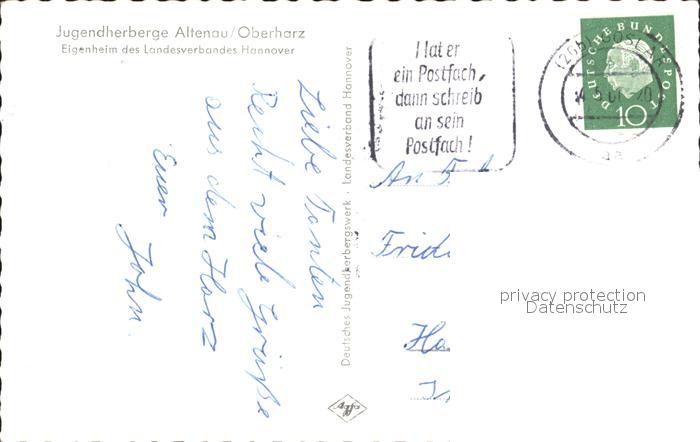 Jugendherberge Altenau/Oberharz
Eigenheim des Landesverbandes Hannover
Liebe Tanten
Recht viele Grüße
aus dem Harz
Euer John.
Deutsches Jugendherbergswerk · Landesverband Hannover
Hat er
ein Postfach,
dann schreib
an sein
Postfach!
DEUTSCHE BUNDESPOST
10
GOSLAR
An
Frid
Ha
privacy protection
Datenschutz
Agfa